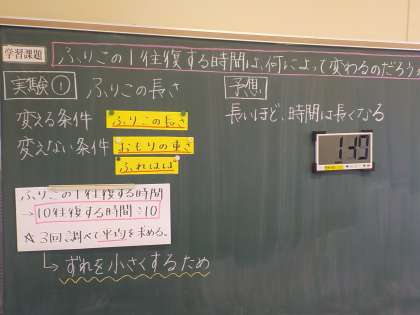 学習課題 ふりこの1往復する時間は、何によって変わるのだろう
実験① ふりこの長さ
変える条件 ふりこの長さ
変えない条件 おもりの重さ
ふれはば
ふりこの1往復する時間
→10往復する時間÷10
☆3回調べて平均を求める。
↳ずれを小さくするため
予想
長いほど、時間は長くなる